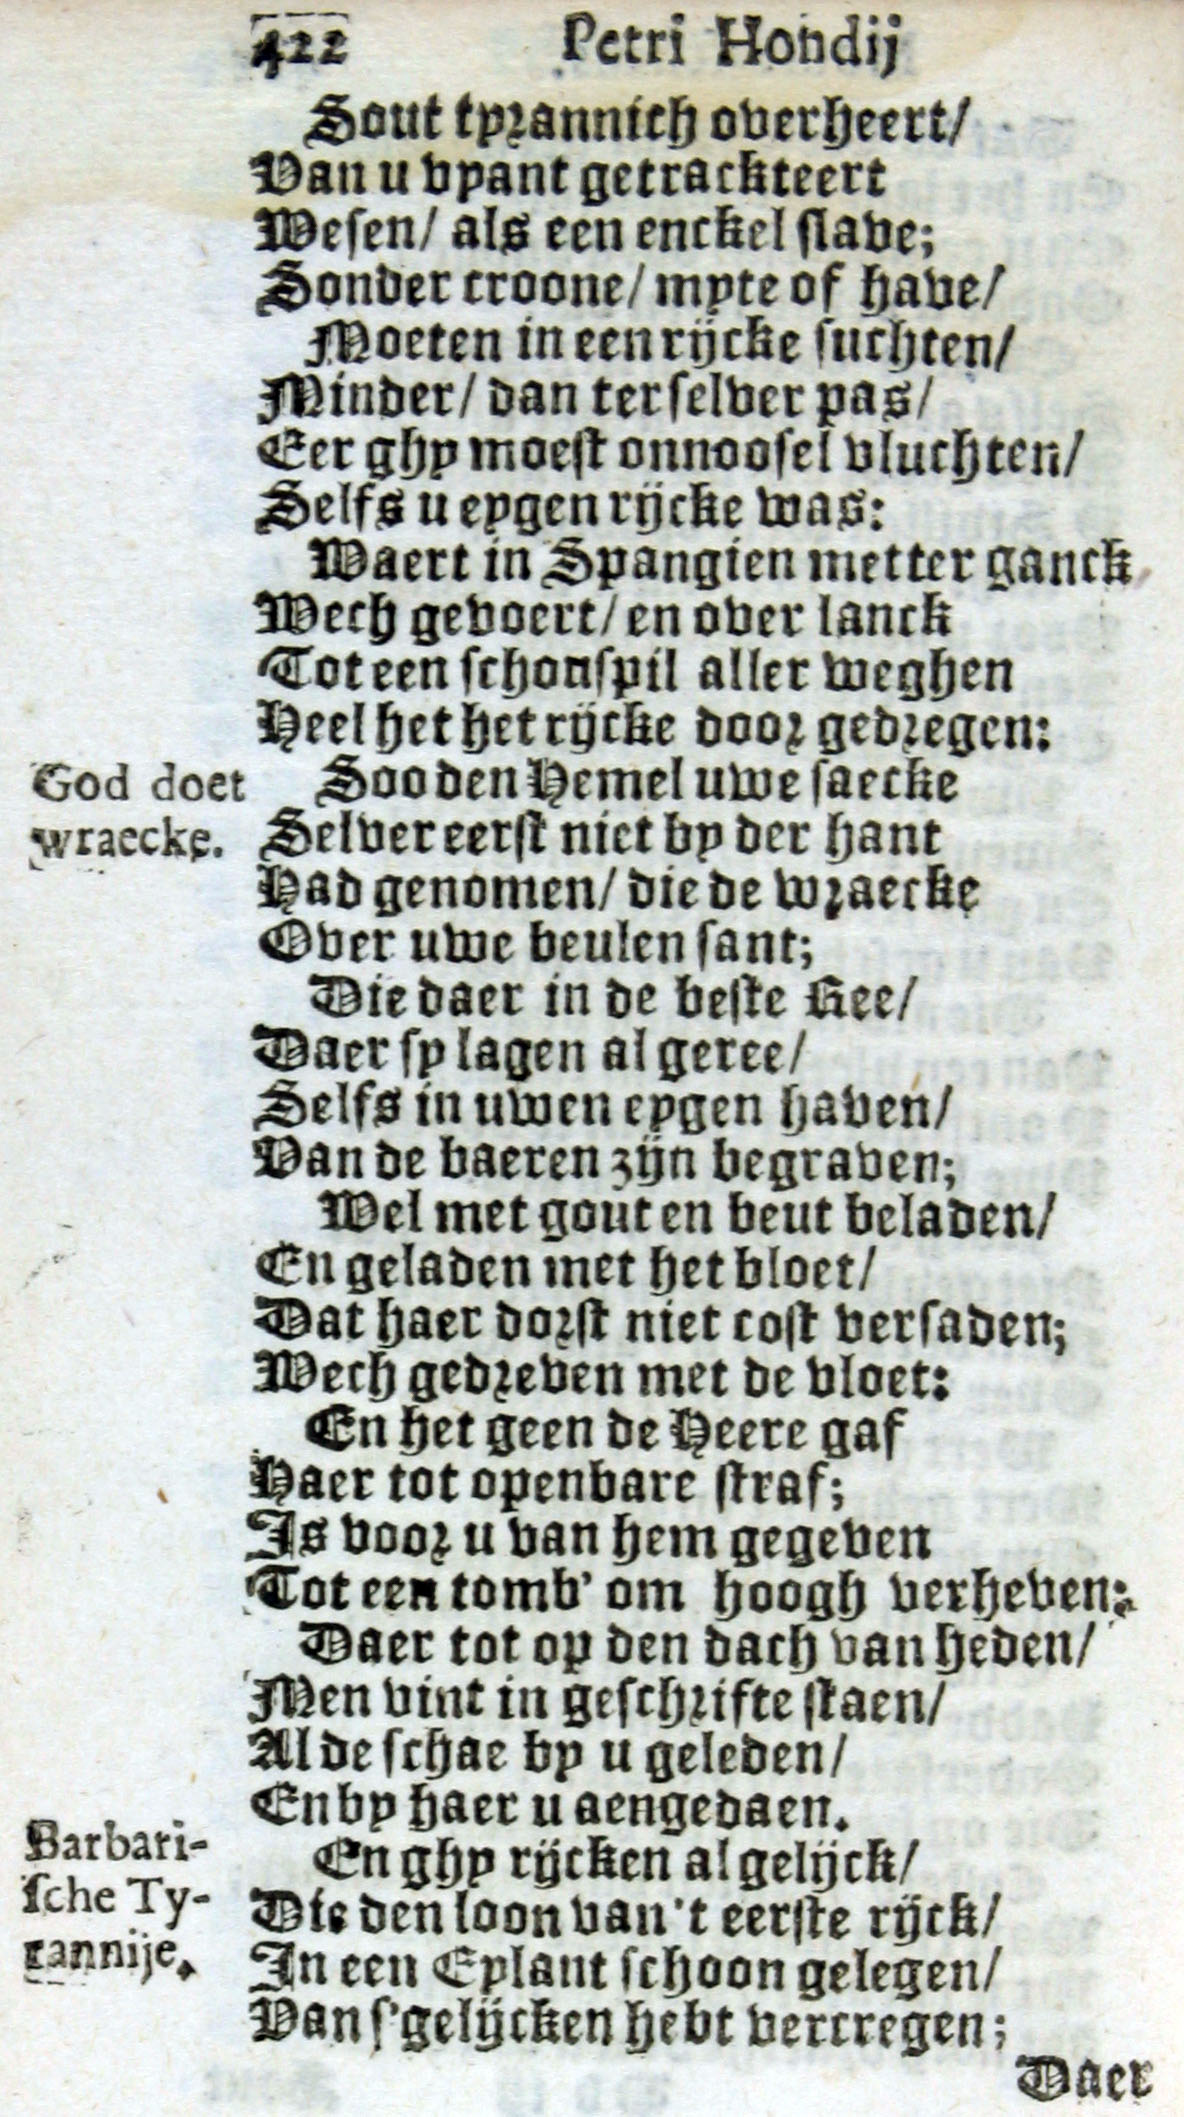 422 Petri Hondij
Sout tyrannich overheert/
Van u vyant getrackteert
Wesen/ als een enckel slave;
Sonder croone/ myte of have/
Moeten in een rijcke suchten/
Minder/ dan ter selver pas/
Eer ghy moest onnoosel vluchten/
Selfs u eygen rijcke was:
Waert in Spangien metter ganck
Wech gevoert/ en over lanck
Tot een schouspil aller weghen
Heel het het rijcke door gedregen:
God doet
wraecke.
Soo den Hemel uwe saecke
Selver eerst niet by der hant
Had genomen/ die de wraecke
Over uwe beulen sant;
Die daer in de beste Ree/
Daer sy lagen al geree/
Selfs in uwen eygen haven/
Van de baeren zijn begraven;
Wel met gout en beut beladen/
En geladen met het bloet/
Dat haer dorst niet cost versaden;
Wech gedreven met de vloet:
En het geen de Heere gaf
Haer tot openbare straf;
Is voor u van hem gegeven
Tot een tomb' om hoogh verheven:
Daer tot op den dach van heden/
Men vint in geschrifte staen/
Al de schae by u geleden/
En by haer u aengedaen.
Barbari-
sche Ty-
rannije.
En ghy rijcken al gelijck/
Die den loon van 't eerste rijck/
In een Eylant schoon gelegen/
Van s'gelijcken hebt vercregen;
Daer